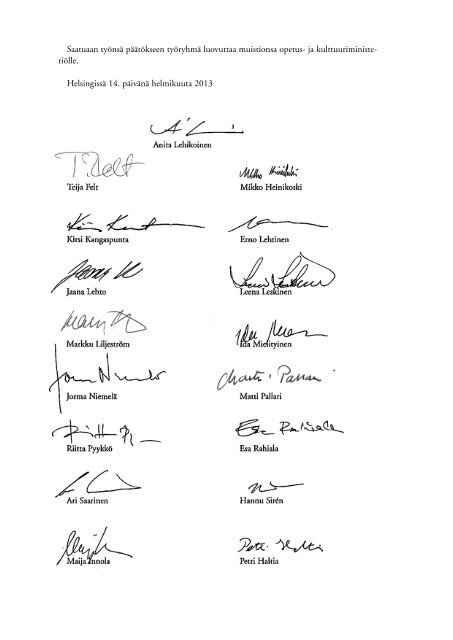 Saatuaan työnsä päätökseen työryhmä luovuttaa muistionsa opetus- ja kulttuuriministe-
riölle.
Helsingissä 14. päivänä helmikuuta 2013
Anita Lehikoinen
Teija Felt
Mikko Heinikoski
Kirsi Kangaspunta
Erno Lehtinen
Jaana Lehto
Leena Leskinen
Markku Liljeström
Ida Mielityinen
Jorma Niemelä
Matti Pallari
Riitta Pyykkö
Esa Rahiala
Ari Saarinen
Hannu Sirén
Maija Innola
Petri Haltia